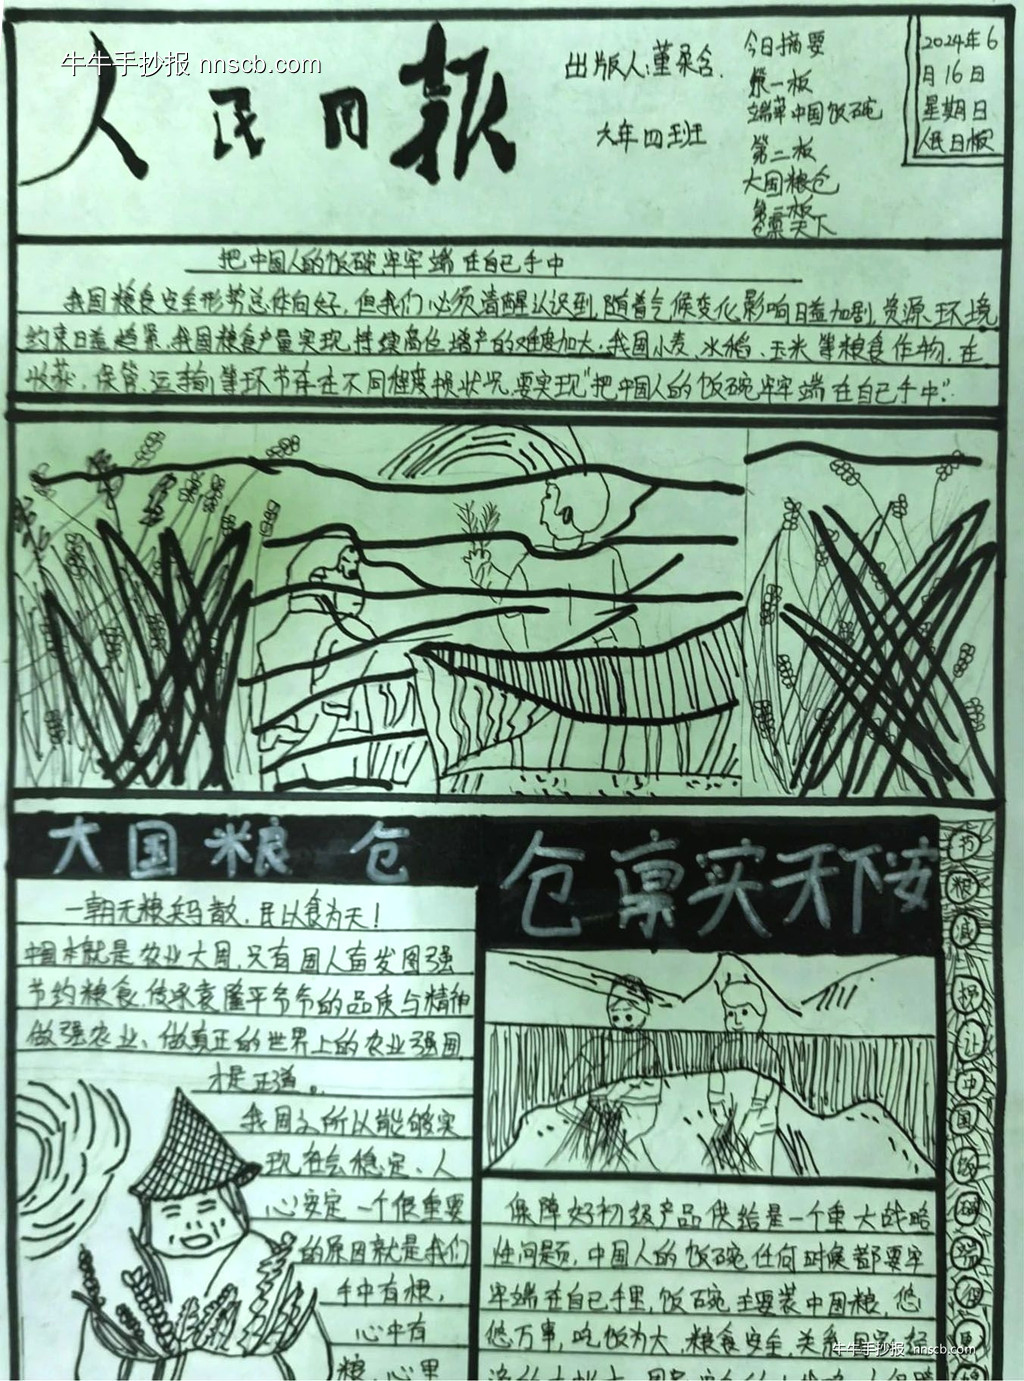 牛牛手抄报 nnscb.com
人民日报
出版人:董
六年四班
今日摘要
第一板
端牢中国饭碗
第二板
大国粮仓
第三板
仓禀天下
2024年6
月16日
星期日
人民日报
把中国人的饭碗牢牢端在自己手中
我国粮食安全形势总体向好,但我们必须清醒认识到,随着气候变化,影响日益加剧,资源、环境
约束日益趋紧,我国粮食产量实现持续高位增产的难度加大,我国小麦、水稻、玉米等粮食作物,在
收获、保管、运输等环节存在不同程度损状况,要实现“把中国人的饭碗牢牢端在自己手中”.
大国粮仓
一朝无粮兵马散,民以食为天!
中国本就是农业大国,只有国人奋发图强
节约粮食,传承袁隆平爷爷的品质与精神
做强农业、做真正的世界上的农业强国
才是正道。
我国之所以能够实
现社会稳定、人
心安定一个很重要
的原因就是我们
手中有粮,
心中有
粮,心里
仓禀实天下安
保障好初级产品供给是一个重大战略
性问题,中国人的饭碗任何时候都要牢
牢端在自己手里,饭碗主要装中国粮,悠
悠万事,吃饭为大,粮食安全,关系国家经
节粮减损让中国饭碗端得更
牛牛手抄报 nnscb.com